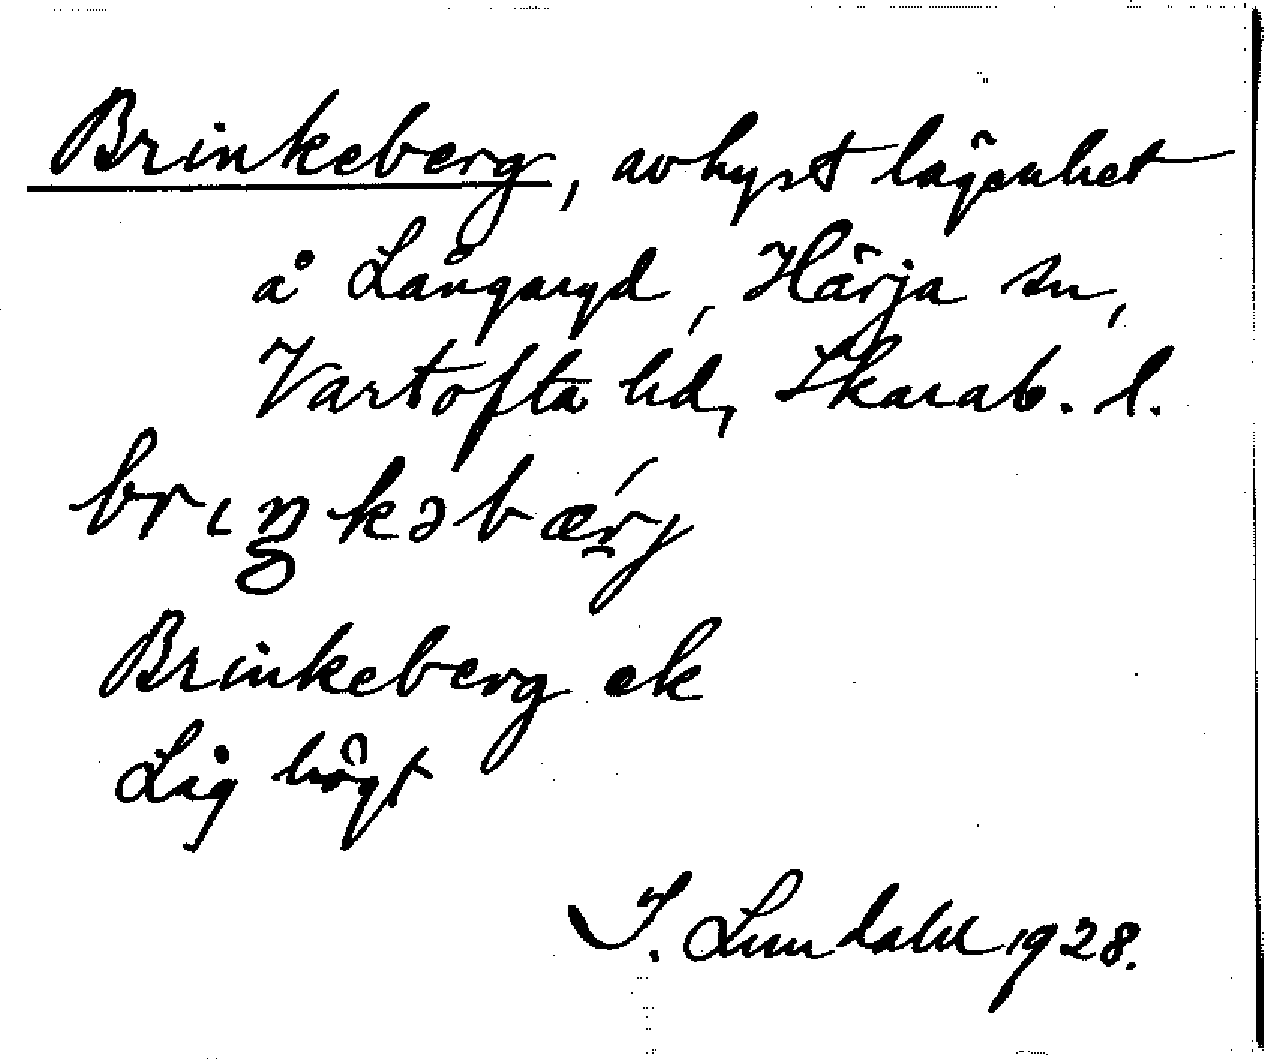 Brinkeberg, avhyst lägenhet
å Långaryd, Härja sn,
Vartofta hd, Skarab. l.
brıŋkəbærj
Brinkeberg ek
Låg högt
I. Lundahl 1928.